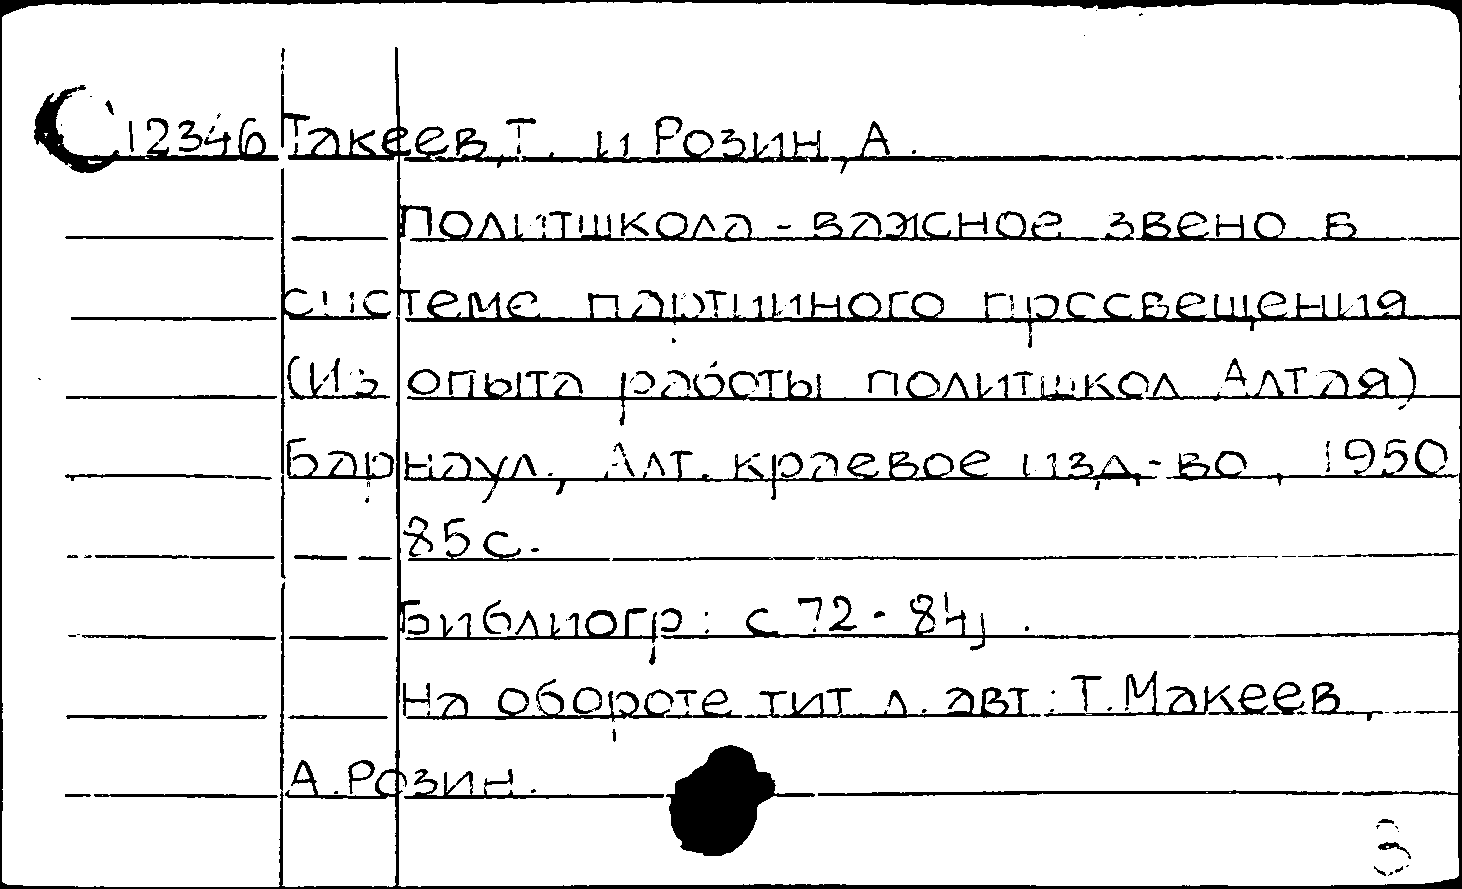 12346 Такеев, Т. и Розин, А.
Политшкола - важное звено в
системе партийного просвещения
(Из опыта работы политшкол Алтая)
Барнаул, Алт. краевое изд-во, 1950
85 с.
Библиогр: с 72 - 84j.
На обороте тит л. авт: Т. Макеев,
А. Розин.
3